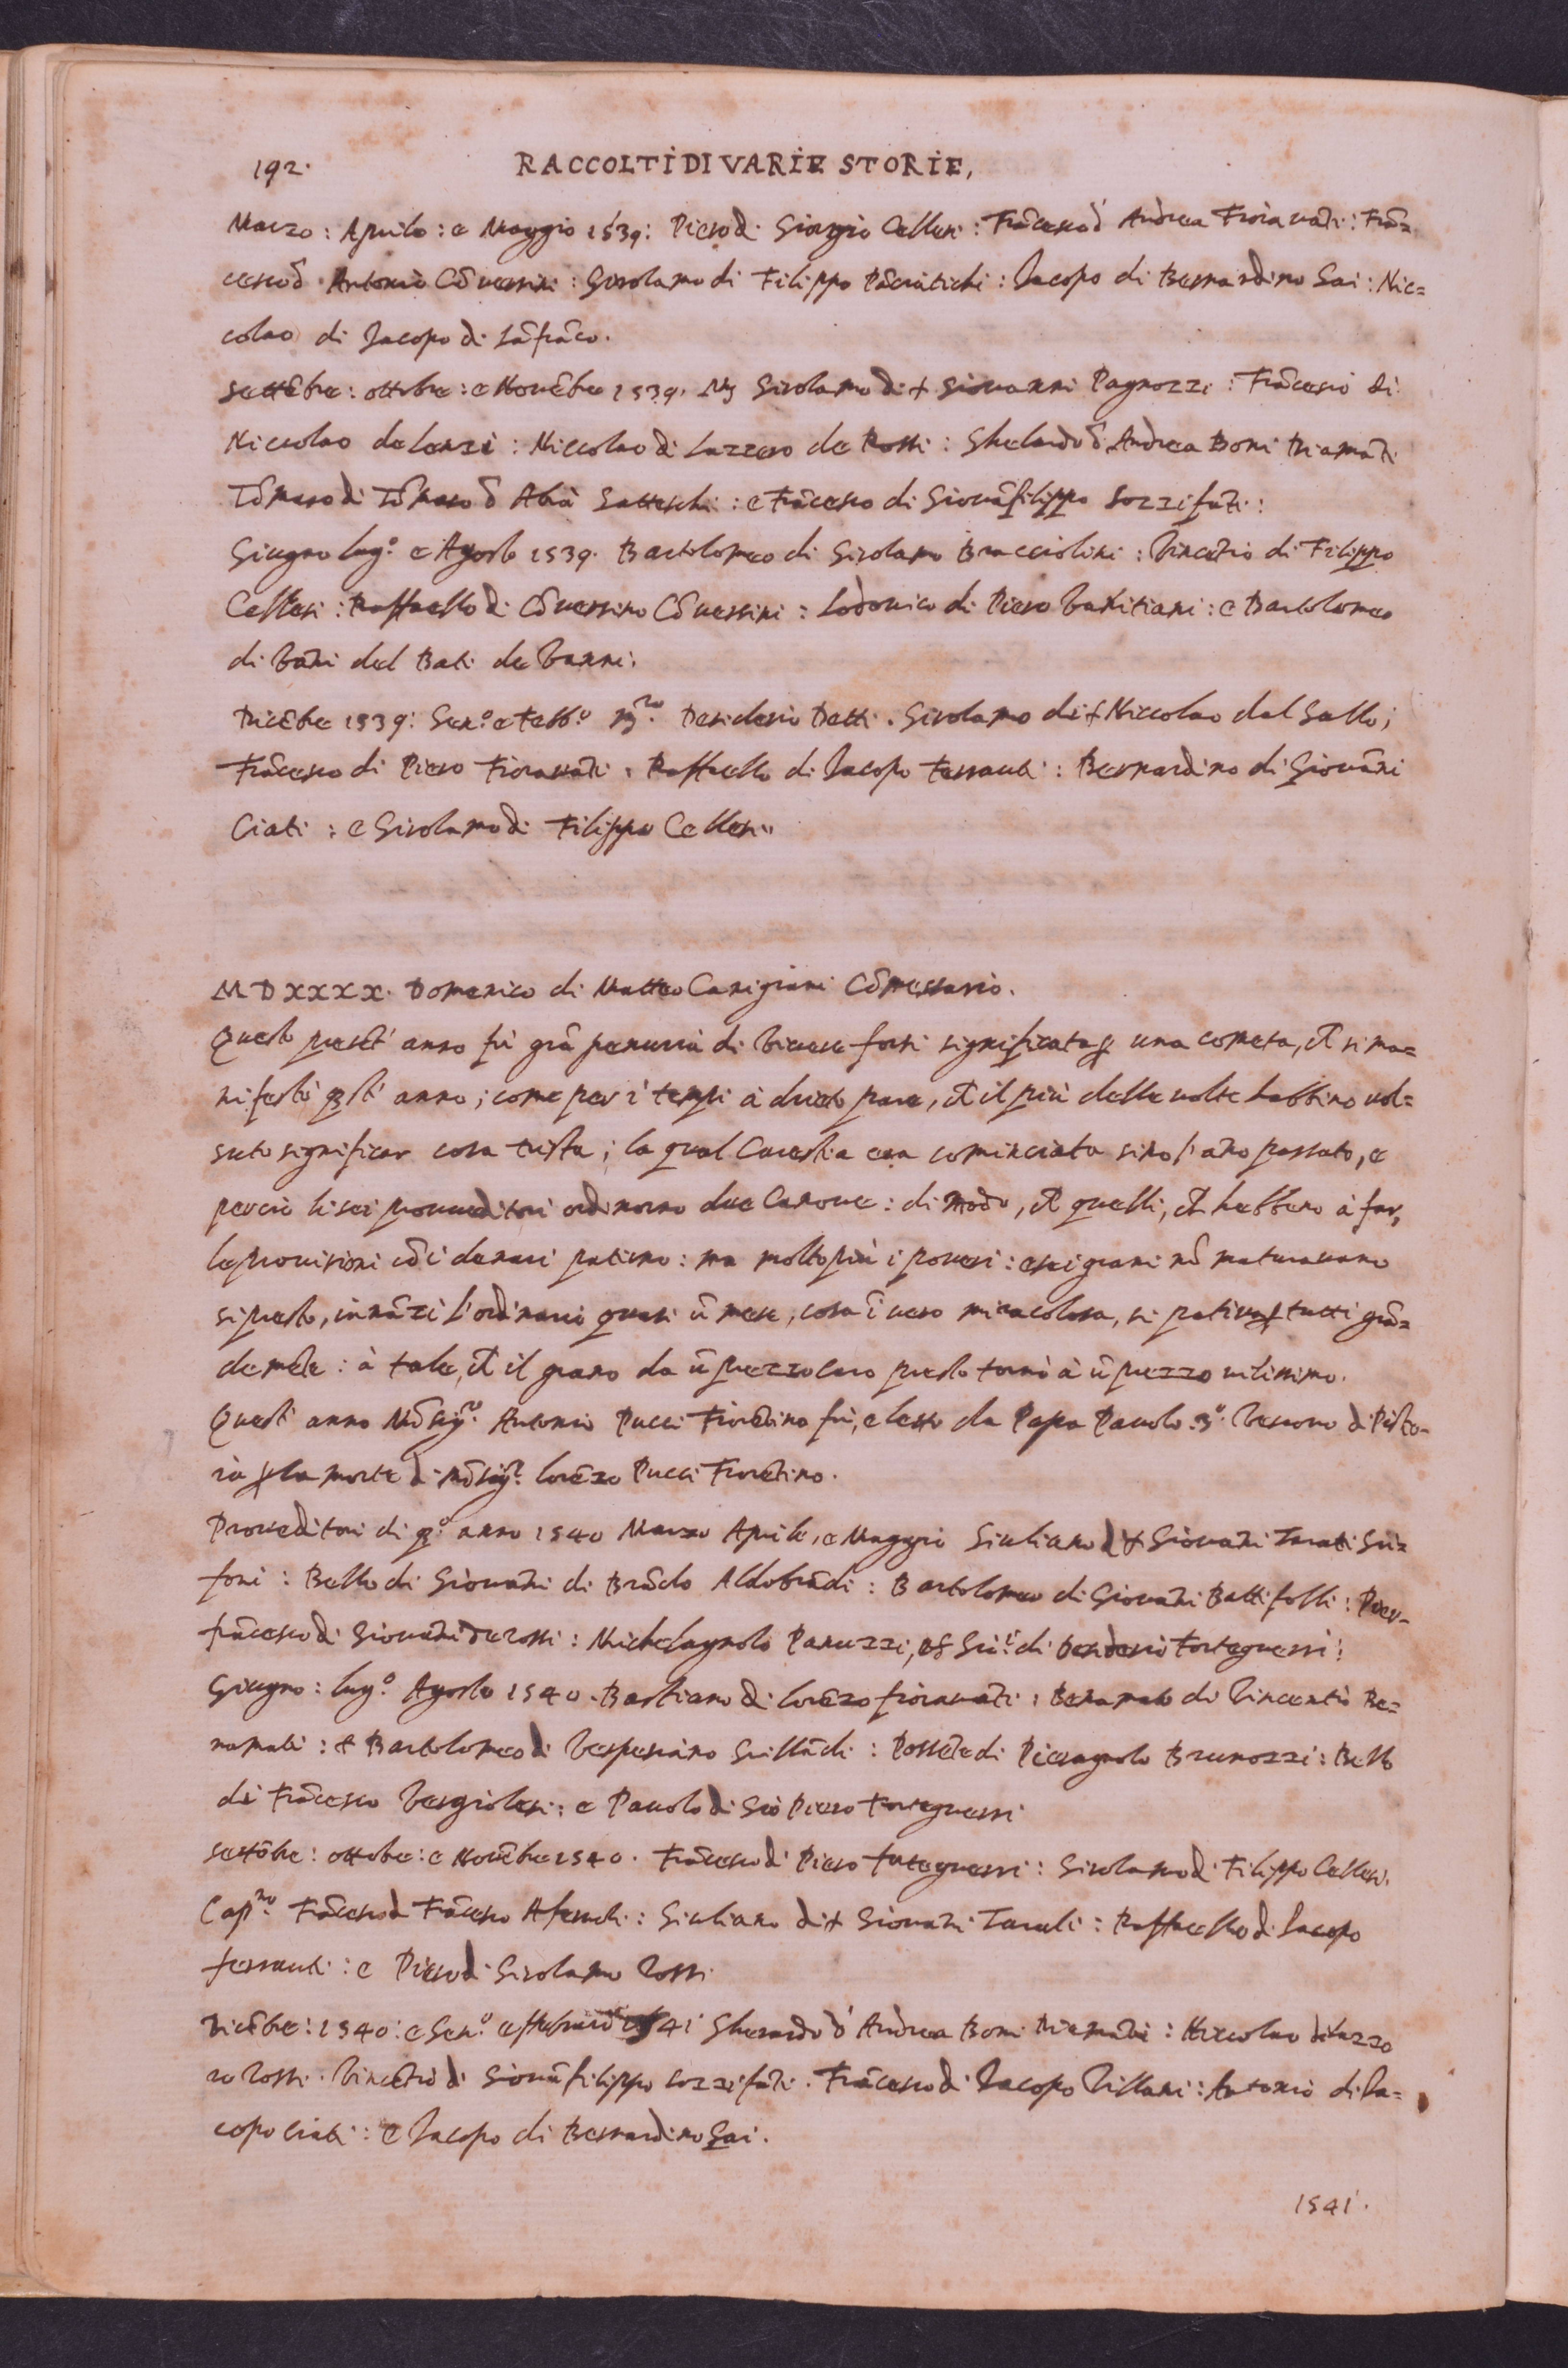 192.
RACCOLTI DI VARIE STORIE,
Marzo: Aprile: e Maggio 1539: Piero di Giorgio Cellesi: Frãcesco d Andrea Fioravãti: Frã=
cesco d Antonio Cõversini: Girolamo di Filippo Pãciatichi: Jacopo di Bernardino Gai: Nic=
colao di Jacopo di Lãfrãco.
Settẽbre: ottobre: e Novẽbre 1539. Girolamo di + Giovanni Pagnozzi: Frãcesco di
Niccolao de lenzi: Niccolao di Lazzero de Rossi: Gherardo d Andrea Boni Diamãti
Tõmaso di Tõmaso d Gatteschi: e Frãcesco di Giovãfilippo Sozzifãti:
Giugno lug.º e Agosto 1539. Bartolomeo di Girolamo Bracciolini: Vincẽtio di Filippo
Cellesi: Raffaello di Cõversino Cõversini: Lodovico di Piero Vanitiani: e Bartolomeo
di Vãni del Bati de Vanni.
Dicẽbre 1539: Gen.º e Febb.º Desiderio Detti. Girolamo di + Niccolao dal Gallo;
Frãcesco di Piero Fioravãti. Raffaello di Jacopo ferranti: Bernardino di Giovãni
Ciati: e Girolamo di Filippo Cellesi.
MDXXXX. Domenico di Matteo Canigiani Cõmessario.
Questo presẽt' anno fù grã penuria di vivere forsi significata ꝑ una cometa, ch si ma=
nifestò qst' anno; come per i tempi à drieto pare, ch il più delle volte habbino vol=
suto significar cosa trista; la qual Carestia era cominciata sino l'ãno passato, e
perciò li sei proveditori ordinorno due Canove: di modo, ch quelli, ch hebbero à far,
le provisioni cõ i denari patirno: ma molto più i poveri: e se i grani nõ maturavano
si presto, innãzi l'ordinario quasi ũ mese, cosa ĩ vero miracolosa, si pativa ꝑ tutti grã=
demẽte: à tale, ch il grano da ũ prezzo caro presto tornò à ũ prezzo vilissimo.
Quest' anno Mõsig.re Antonio Pucci Fiorẽtino fù, eletto da Papa Pauolo 3º. Vescovo di Pisto=
ia ꝑ la morte di Mõsig.re Lorẽzo Pucci Fiorẽtino.
Proveditori di q.º anno 1540 Marzo Aprile, e Maggio Giuliano d + Giovãni Tarati Gri=
foni: Bello di Giovãni di Brãdo Aldobrãdi: Bartolomeo di Giovãni Battifolli: Pier=
frãcesco di Giovãni de rossi: Michelagnolo Panuzzi, di Desiderio Forteguerri:
Giugno: lug.º Agosto 1540. Bastiano di Lorẽzo fioravãti: Benamato di Vincentio Be=
namati: + Bartolomeo di Vespesiano Grillãdi: Possẽte di Pieragnolo Brunozzi: Bello
di Frãcesco Vergiolesi: e Pauolo di Gio Piero Forteguerri
Settẽbre: ottobre: e Novẽbre 1540. Frãcesco di Piero Forteguerri: Girolamo di Filippo Cellesi.
Cap.no Frãcesco di Frãcesco: Giuliano di + Giovãni Tarati: Raffaello di Jacopo
ferranti: e Piero di Girolamo Rossi
Dicẽbre: 1540: e Gen.º e febraio 1541 Gherardo d'Andrea Boni Diamãti: Niccolao di Lazze
ro Rossi. Vincẽtio di Giovãfilippo Sozzifãti. Frãcesco di Jacopo Villani: Antonio di Ja=
copo Ciati: e Jacopo di Bernardino Gai.
1541.